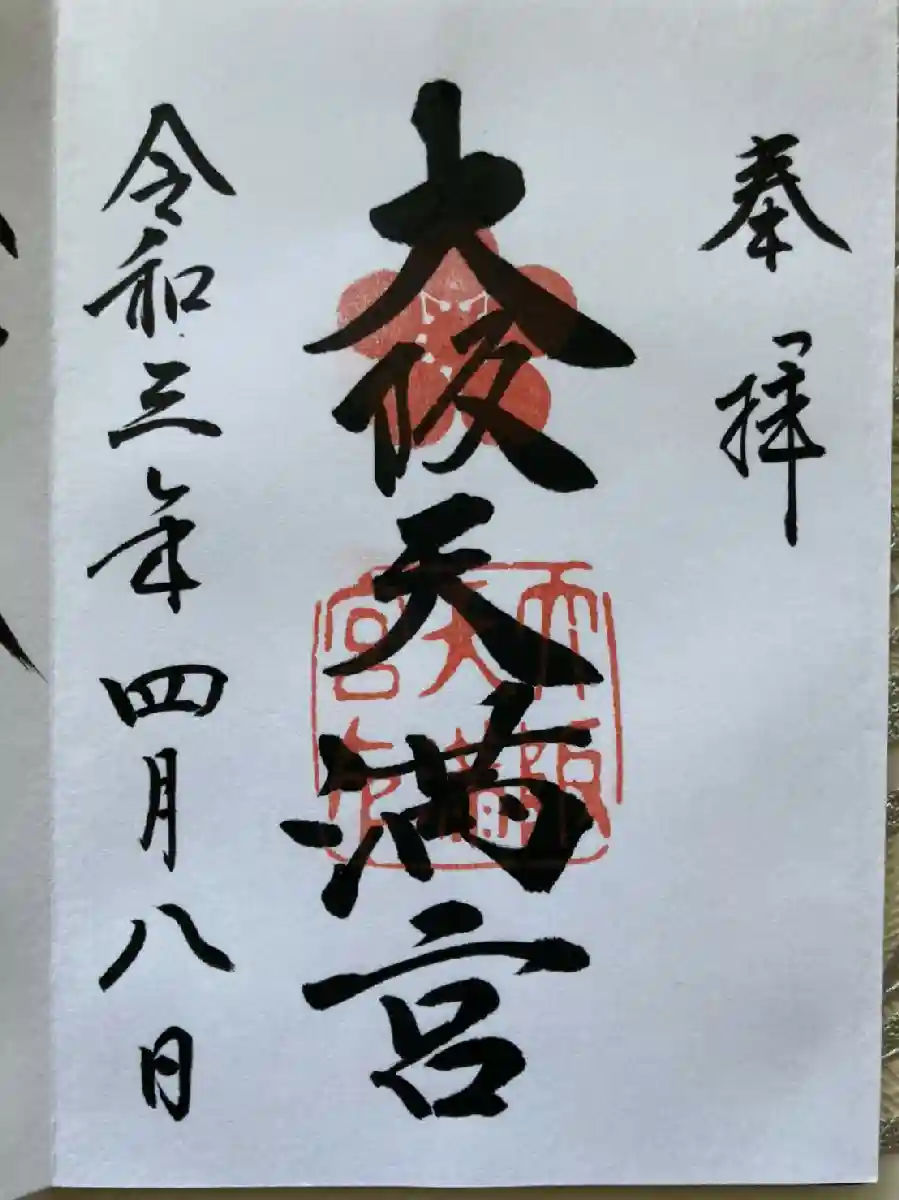 奉拝
大阪天満宮
大阪天満宮
令和三年四月八日